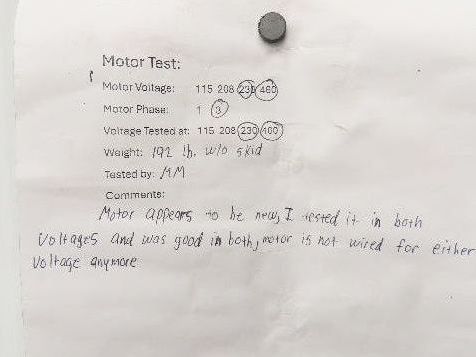 Motor Test:
Motor Voltage: 115 208 230 460
Motor Phase: 1 3
Voltage Tested at: 115 208 230 460
Weight: 192 lb. w/o skid
Tested by: MM
Comments:
Motor appears to be new, I tested it in both
voltages and was good in both, motor is not wired for either
voltage anymore